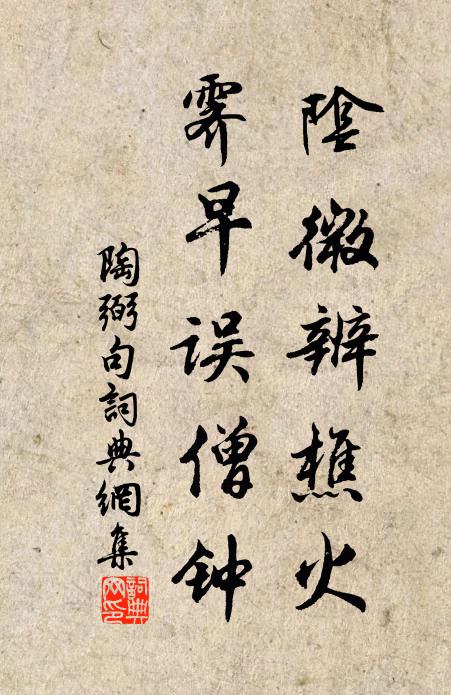 陰微辨樵火
霽早误僧钟
陶弼句詞典網集
詞典网印